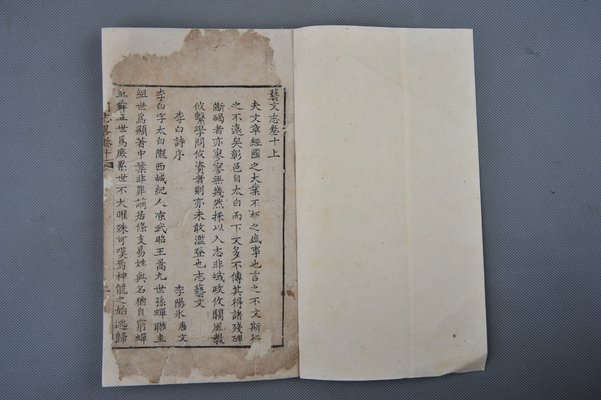 藝文志卷十上
夫文章經國之大業不朽之盛事也言之不文斯行
之不遠矣彰邑自太白而下文多不傳其得諸殘碑
斷碣者亦寥寥無幾然採以入志非域政攸關風教
攸繫學問攸資者則亦未敢濫登也志藝文
李白詩序 李陽氷 唐文
李白字太白隴西城紀人凉武昭王暠九世孫蟬聯圭
組世爲顯著中葉非罪謫居條支易姓與名猶自窮蟬
至舜五世爲庶累世不大曜殊可嘆焉神龍之始逃歸
志畧卷十